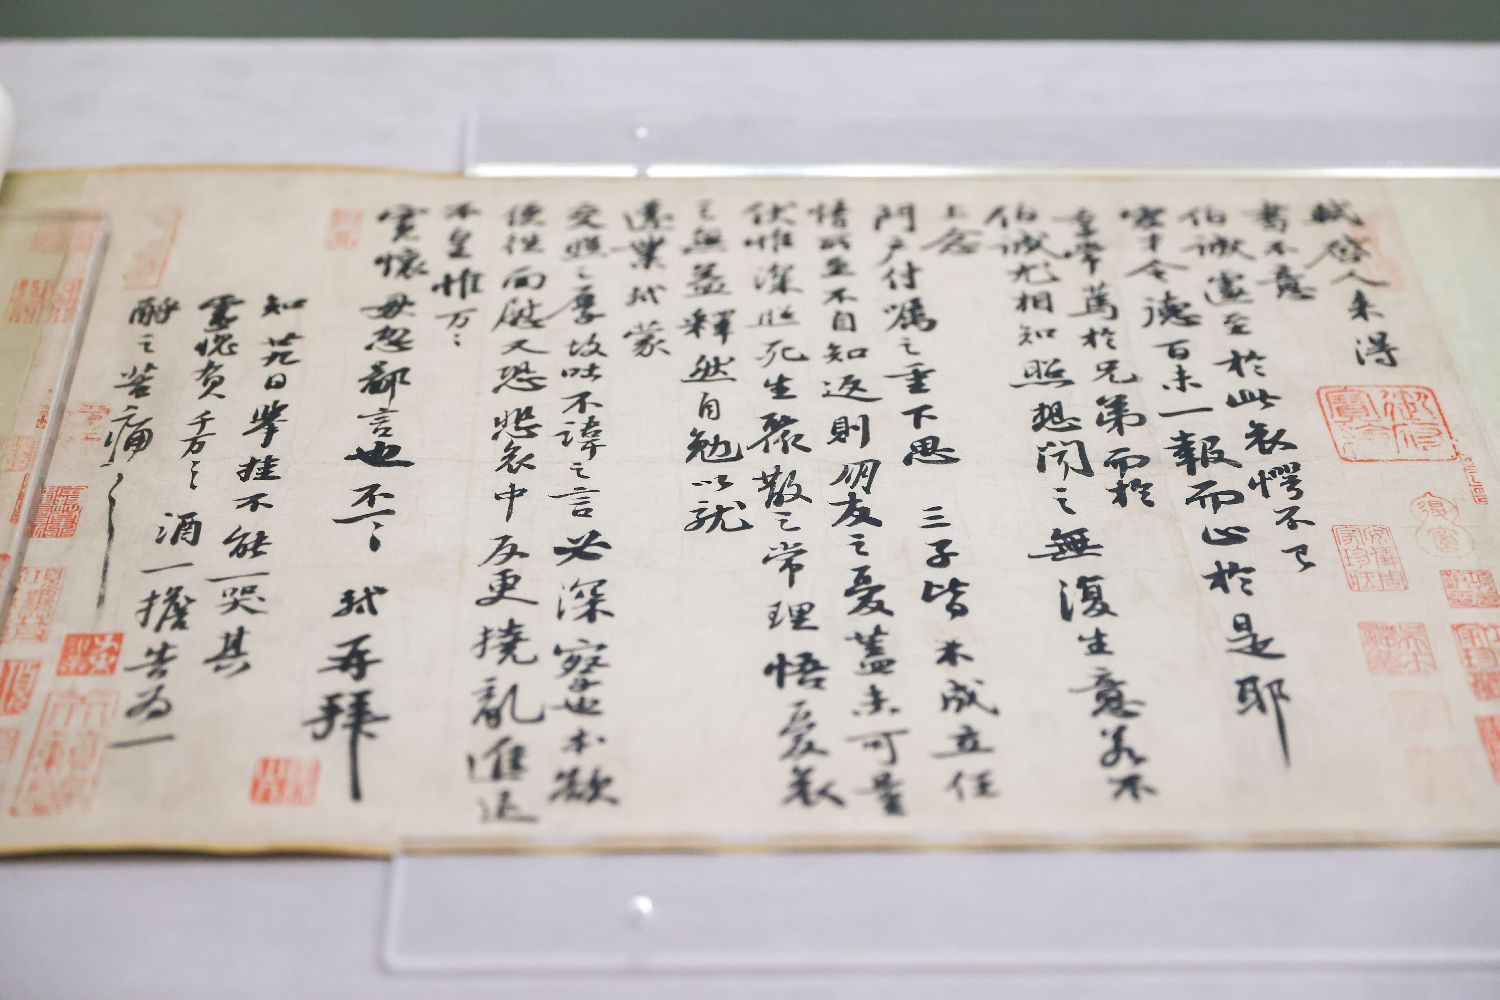 軾啓人來得
書不意
伯誠遽至於此哀愕不已
宏才令德百未一報而止於是耶
季常篤於兄弟而於
伯誠尤相知照想聞之無復生意若不
上念
門戶付囑之重下思三子皆未成立任
情所至不自知返則朋友之憂蓋未可量
伏惟深照死生聚散之常理悟憂哀
之無益釋然自勉以就
遠業軾蒙
交照之厚故吐不諱之言必深察也本欲
便往面慰又恐悲哀中反更撓亂進退
不皇惟万〻
寬懷毋忽鄙言也不一〻軾再拜
知廿九日舉挂不能一哭其
靈愧負千万〻
酒一擔告為一
酹之苦痛〻